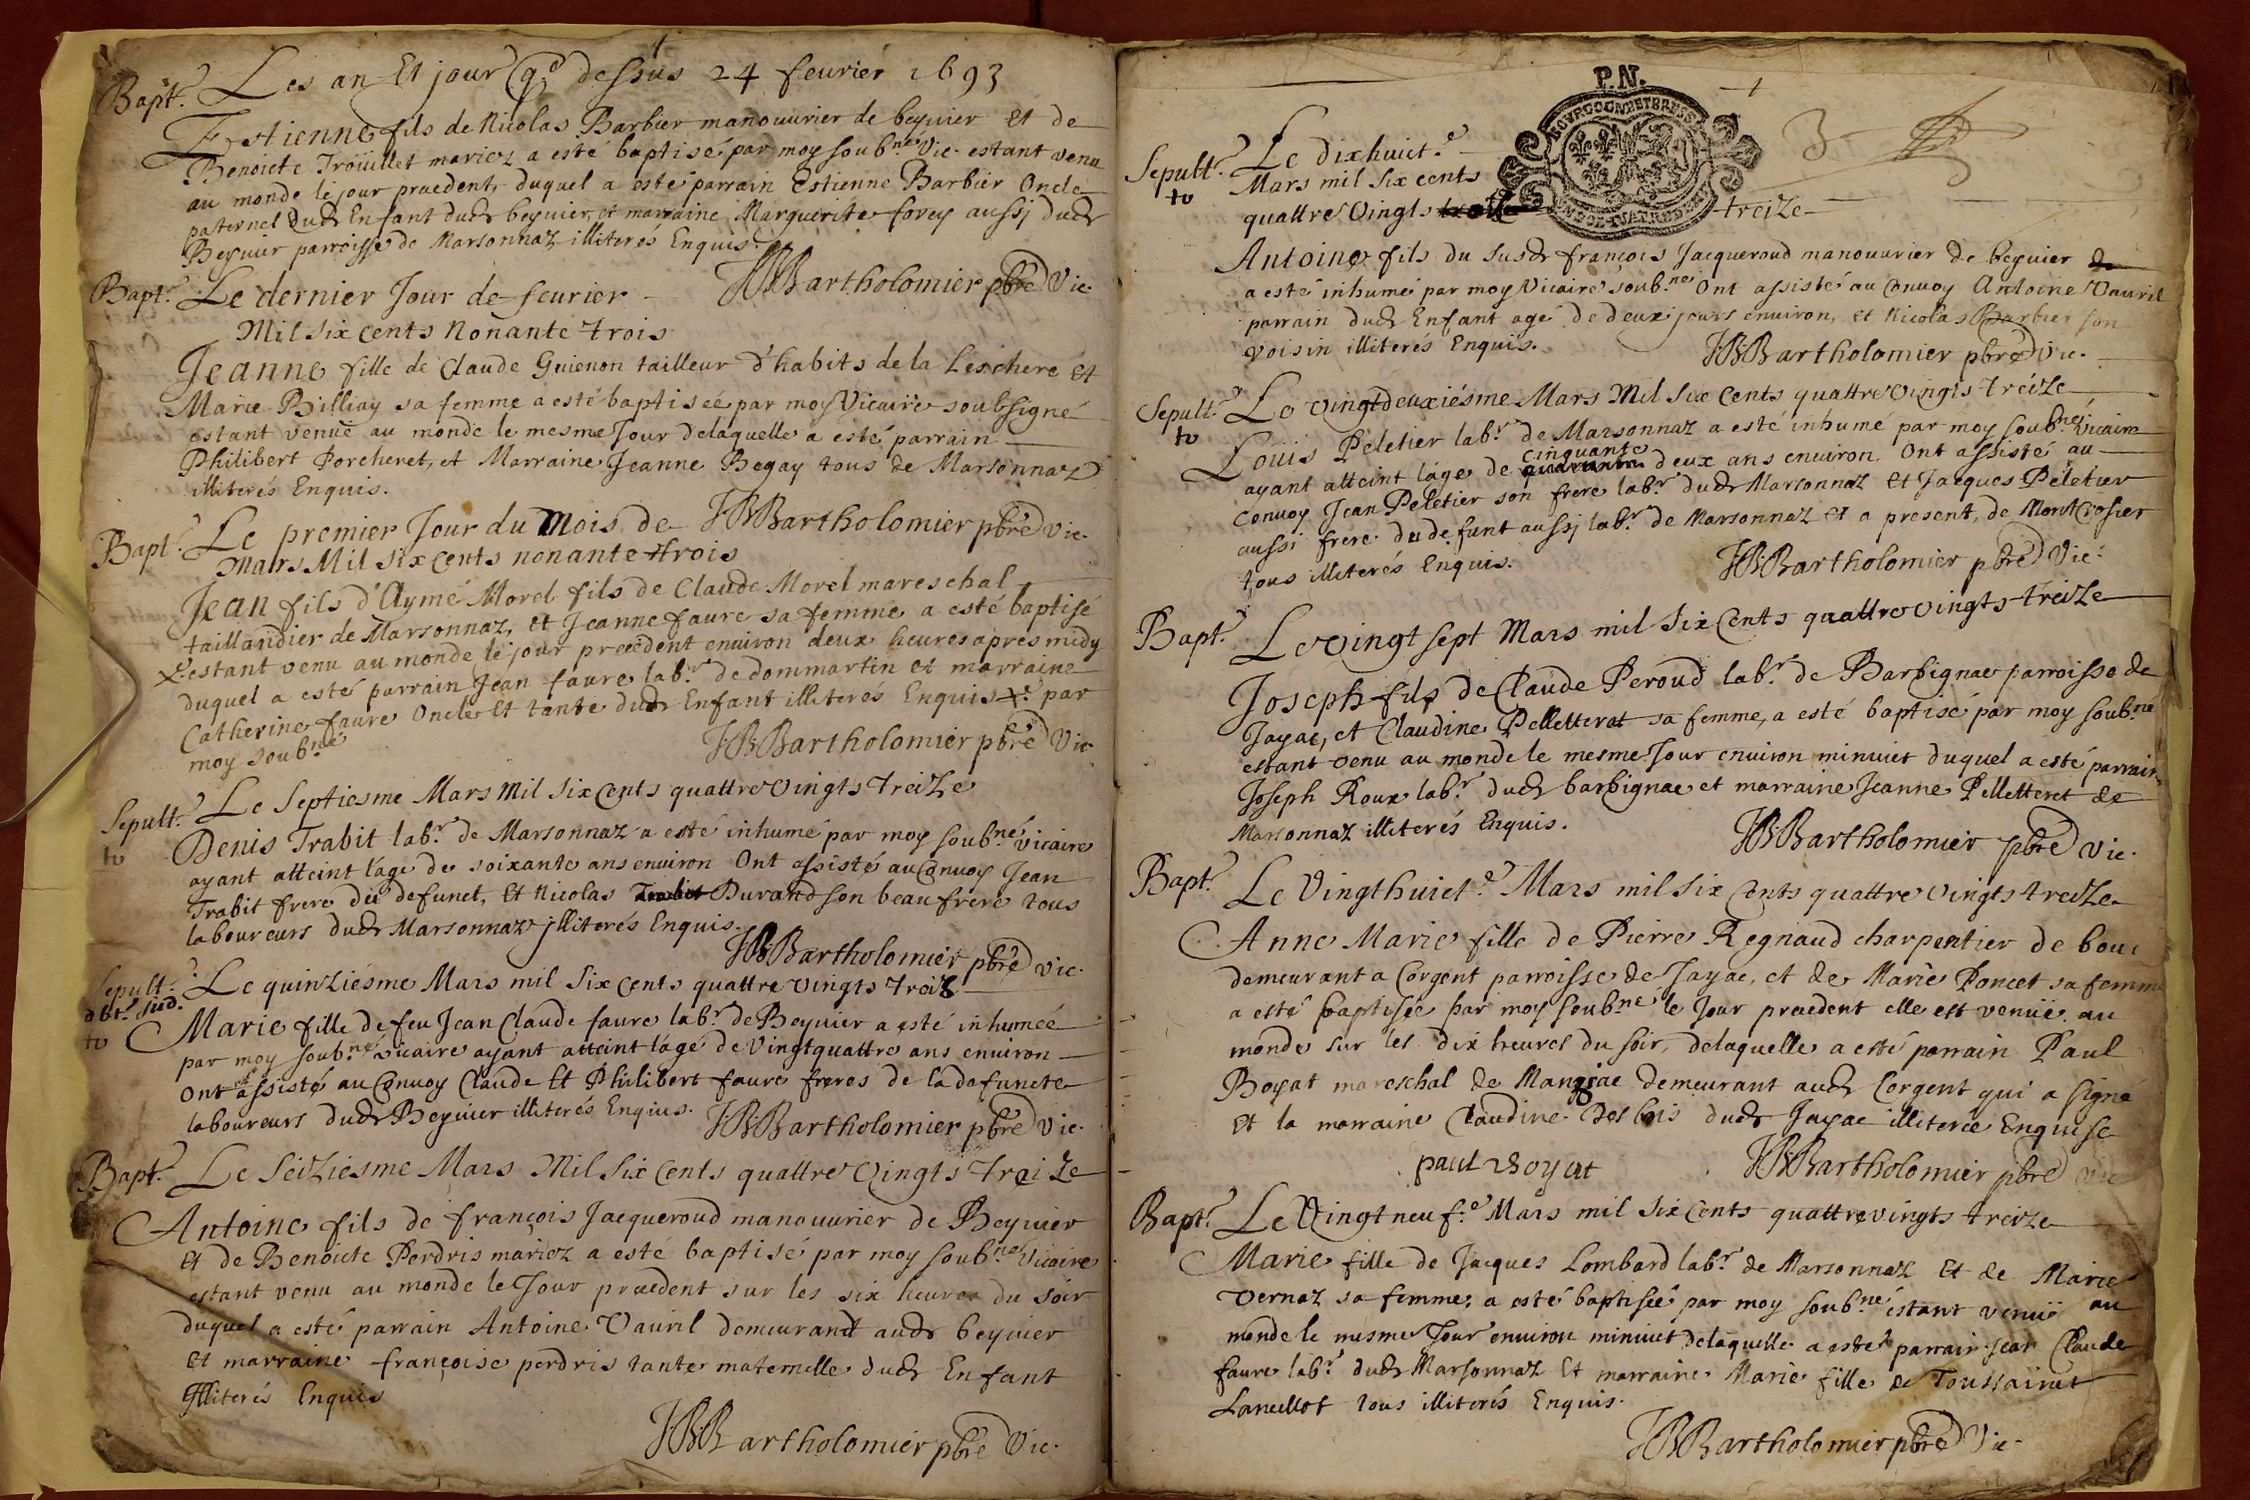 Bapt.
Les an Et jour q. dessus 24 feurier 1693
Estienne fils de Nicolas Barbier manouurier de beyuier Et de
Benoicte Troüillet mariez a esté baptisé par moy soub.né Vic. estant venu
au monde le jour praedent, duquel a esté parrain Estienne Barbier Oncle
paternel dudt Enfant dudt beyuier, et marraine Marguerite forey aussj dudt
Beyuier parroisse de Marsonnaz illiterés Enquis.
JBBartholomier pbre Vic.
Bapt.
Le dernier Jour de feurier
Mil six cents Nonante trois
Jeanne fille de Claude Guienon tailleur d'habits de la Leschere et
Marie Billiay sa femme a esté baptiseé par moy Vicaire soubsigné
estant venuë au monde le mesme Jour delaquelle a esté parrain
Philibert Porcheret, et Marraine Jeanne Begay tous de Marsonnaz
illiterés Enquis.
JBBartholomier pbre vic.
Bapt.
Le premier Jour du Mois de
Mars Mil six cents nonante trois
Jean fils d'Aymé Morel fils de Claude Morel mareschal
taillandier de Marsonnaz, et Jeanne faure sa femme a esté baptisé
estant venu au monde le jour precedent enuiron deux heures apres midy
duquel a esté parrain Jean faure lab.r de dommartin et marraine
Catherine faure Oncle Et tante dudt Enfant illiteres Enquis par
moy soub.né
JBBartholomier pbre Vic
Sepult.
to
Le Septiesme Mars Mil six Cents quattre vingts treize
Denis Trabit lab.r de Marsonnaz a esté inhumé par moy soub.né vicaire
ayant atteint l'age de soixante ans enuiron Ont assisté au Conuoy Jean
Trabit frere du defunct, Et Nicolas Durand son beaufrere tous
laboureurs dudt Marsonnaz jlliterés Enquis.
JBBartholomier pbre vic.
Sepult.
to
Le quinziésme Mars mil six cents quattre vingts treiz
Marie fille de feu Jean Claude faure lab.r de Beyuier a esté inhumée
par moy soub.né vicaire ayant atteint l'agé de Vingtquattre ans enuiron
Ont assisté au Conuoy Claude Et Philibert faure freres de la defuncte
laboureurs dudt Beyuier illiterés Enquis.
JBBartholomier pbre Vic.
Bapt.
Le Seiziesme Mars Mil Six Cents quattre Vingts treize
Antoine fils de françois Jacqueroud manouurier de Beyuier
et de Benoicte Perdris mariez a esté baptisé par moy soub.né Vicaire
estant venu au monde le Jour praedent sur les six heures du soir
duquel a esté parrain Antoine Vauril demeurant audt beyuier
et marraine françoise perdris tante maternelle dudt Enfant
Jlliterés Enquis
JBBartholomier pbre Vic.
P.N.
3
Sepult.
to
Le dixhuict.e
Mars mil six cents
quattre Vingts treize
Antoine fils du susdt françois Jacqueroud manouurier de beyuier
a esté inhumé par moy Vicaire soub.né Ont assisté au Conuoy Antoine Vauril
parrain dudt Enfant agé de deux jours enuiron, et Nicolas Barbier son
voisin illiterés Enquis.
JBBartholomier pbre Vic.
Sepult.
to
Le vingtdeuxiésme Mars Mil Six Cents quattre Vingts treize
Loüis Peletier lab.r de Marsonnaz a esté inhumé par moy soub.né Vicaire
ayant atteint l'age de cinquante deux ans enuiron. Ont assisté au
Conuoy Jean Peletier son frere lab.r dudt Marsonnaz et Jacques Peletier
aussi frere du defunt aussj lab.r de Marsonnaz et a present, de Montcrosier
tous illiterés Enquis.
JBBartholomier pbre Vic.
Bapt.
Le vingt sept Mars mil six Cents quattre vingts treize
Joseph fils de Claude Peroud lab.r de Barbignae parroisse de
Jayac, et Claudine Pelletterat sa femme, a esté baptisé par moy soub.né
estant venu au monde le mesme Jour enuiron minuict duquel a esté parrain
Joseph Roux lab.r dudt barbignae et marraine Jeanne Pelletteret de
Marsonnaz illiterés Enquis.
JBBartholomier pbre Vic.
Bapt.
Le Vingthuict.e Mars mil six Cents quattre vingts treize
Anne Marie fille de Pierre Regnaud charpentier de
demeurant a Corgent parroisse de Jayac, et de Marie Poncet sa femme
a esté baptisée par moy soub.né le Jour praedent elle est venuë au
monde sur les dix heures du soir, delaquelle a esté parrain Paul
Boyat mareschal de Mangiae demeurant audt Corgent qui a signé
Et la marraine Claudine Desbois dudt Jayac illiterée Enquise
paul boyat
JBBartholomier pbre vic
Bapt.
Le Vingt neuf.e Mars mil six Cents quattre vingts treize
Marie fille de Jacques Lombard lab.r de Marsonnaz Et de Marie
Vernaz sa femme, a esté baptiseé par moy soub.né estant venuë au
monde le mesme Jour enuiron minuict delaquelle a esté parrain Jean Claude
faure lab.r dudt Marsonnaz Et marraine Marie fille de Toussainct
Lancellot tous illiterés Enquis.
JBBartholomier pbre Vic.